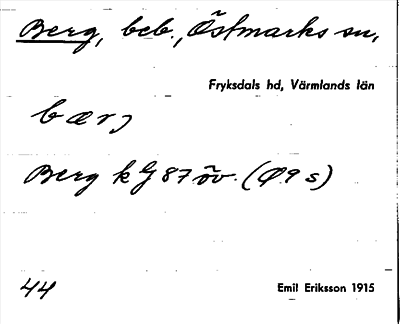 Berg, beb., Östmarks sn,
Fryksdals hd, Värmlands län
bær,
Berg k G 87 öv. (Ø 9 s)
44
Emil Eriksson 1915